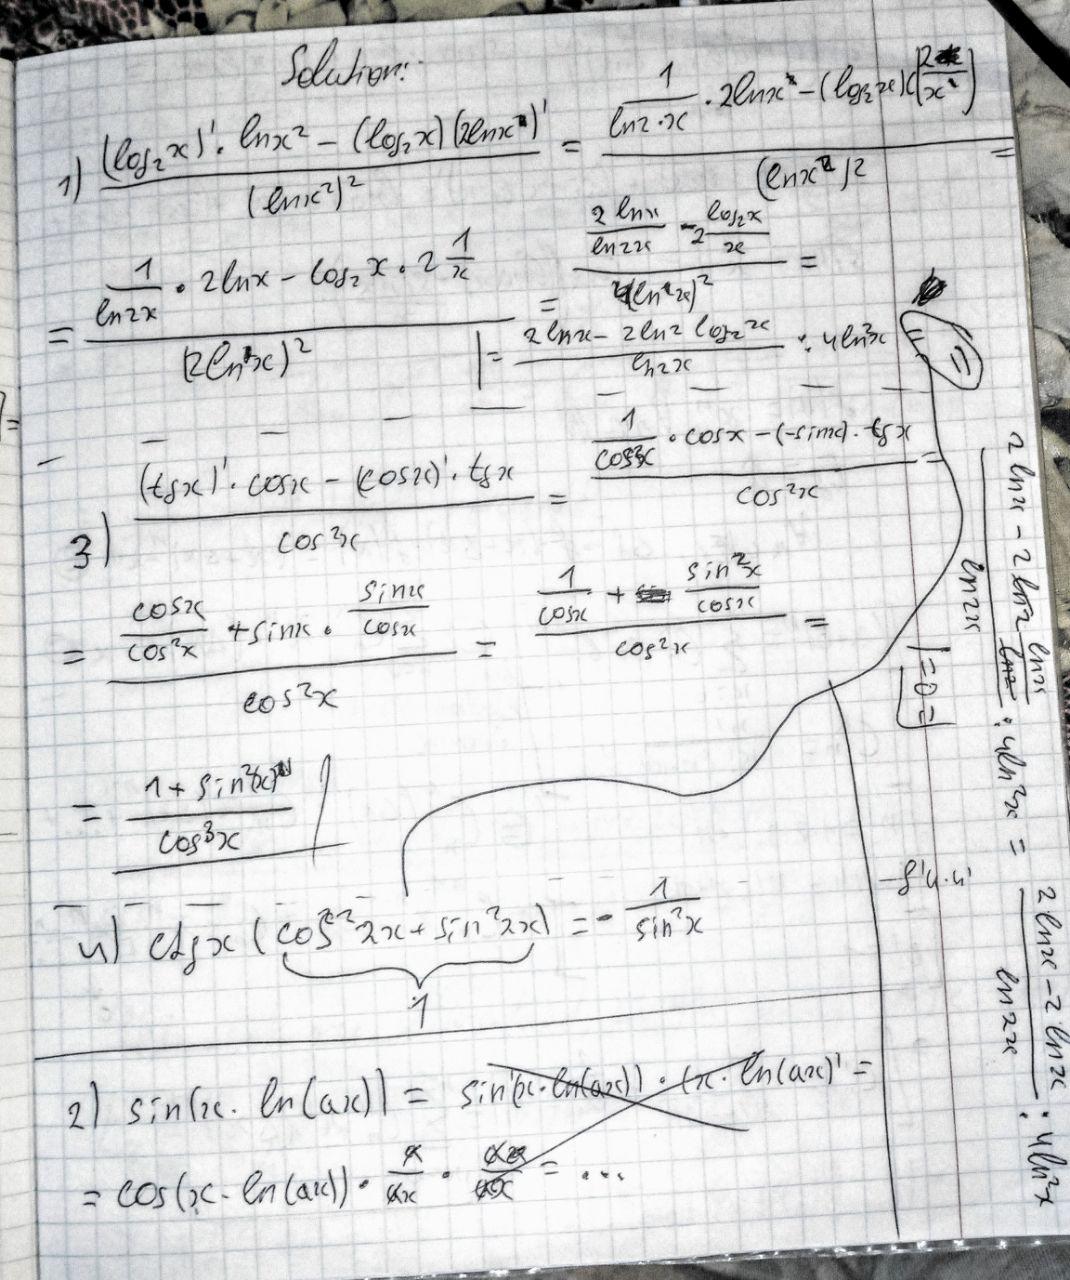 Solution:
1) ((log₂x)'· lnx² − (log₂x)(2lnx)')/(lnx²)² = (1/(ln2·x) · 2lnx − (log₂x)(2/x))/(lnx²)² =
= (1/(ln2x) · 2lnx − log₂x · 2 1/x)/(2lnx)² = (2lnx/(ln2x) − 2 log₂x/x)/(4(lnx)²) =
= (2lnx − 2ln2 log₂x)/(ln2x) : 4ln²x (=
(2lnx − 2ln2 lnx/ln2)/(ln2x) : 4ln²x = (2lnx − 2lnx)/(ln2x) : 4ln²x
=0=
3) ((tgx)'· cosx − (cosx)'· tgx)/cos²x = (1/cos²x · cosx − (−sinx)· tgx)/cos²x =
= (cosx/cos²x + sinx · sinx/cosx)/cos²x = (1/cosx + sin²x/cosx)/cos²x =
= (1 + sin²(x))/cos³x
4) ctgx (cos²2x + sin²2x) = − 1/sin²x
1
−f'u·u'
2) sin(x· ln(ax)) = sin'(x·ln(ax)) · (x· ln(ax)' =
= cos(x· ln(ax)) · a/ax · = ...